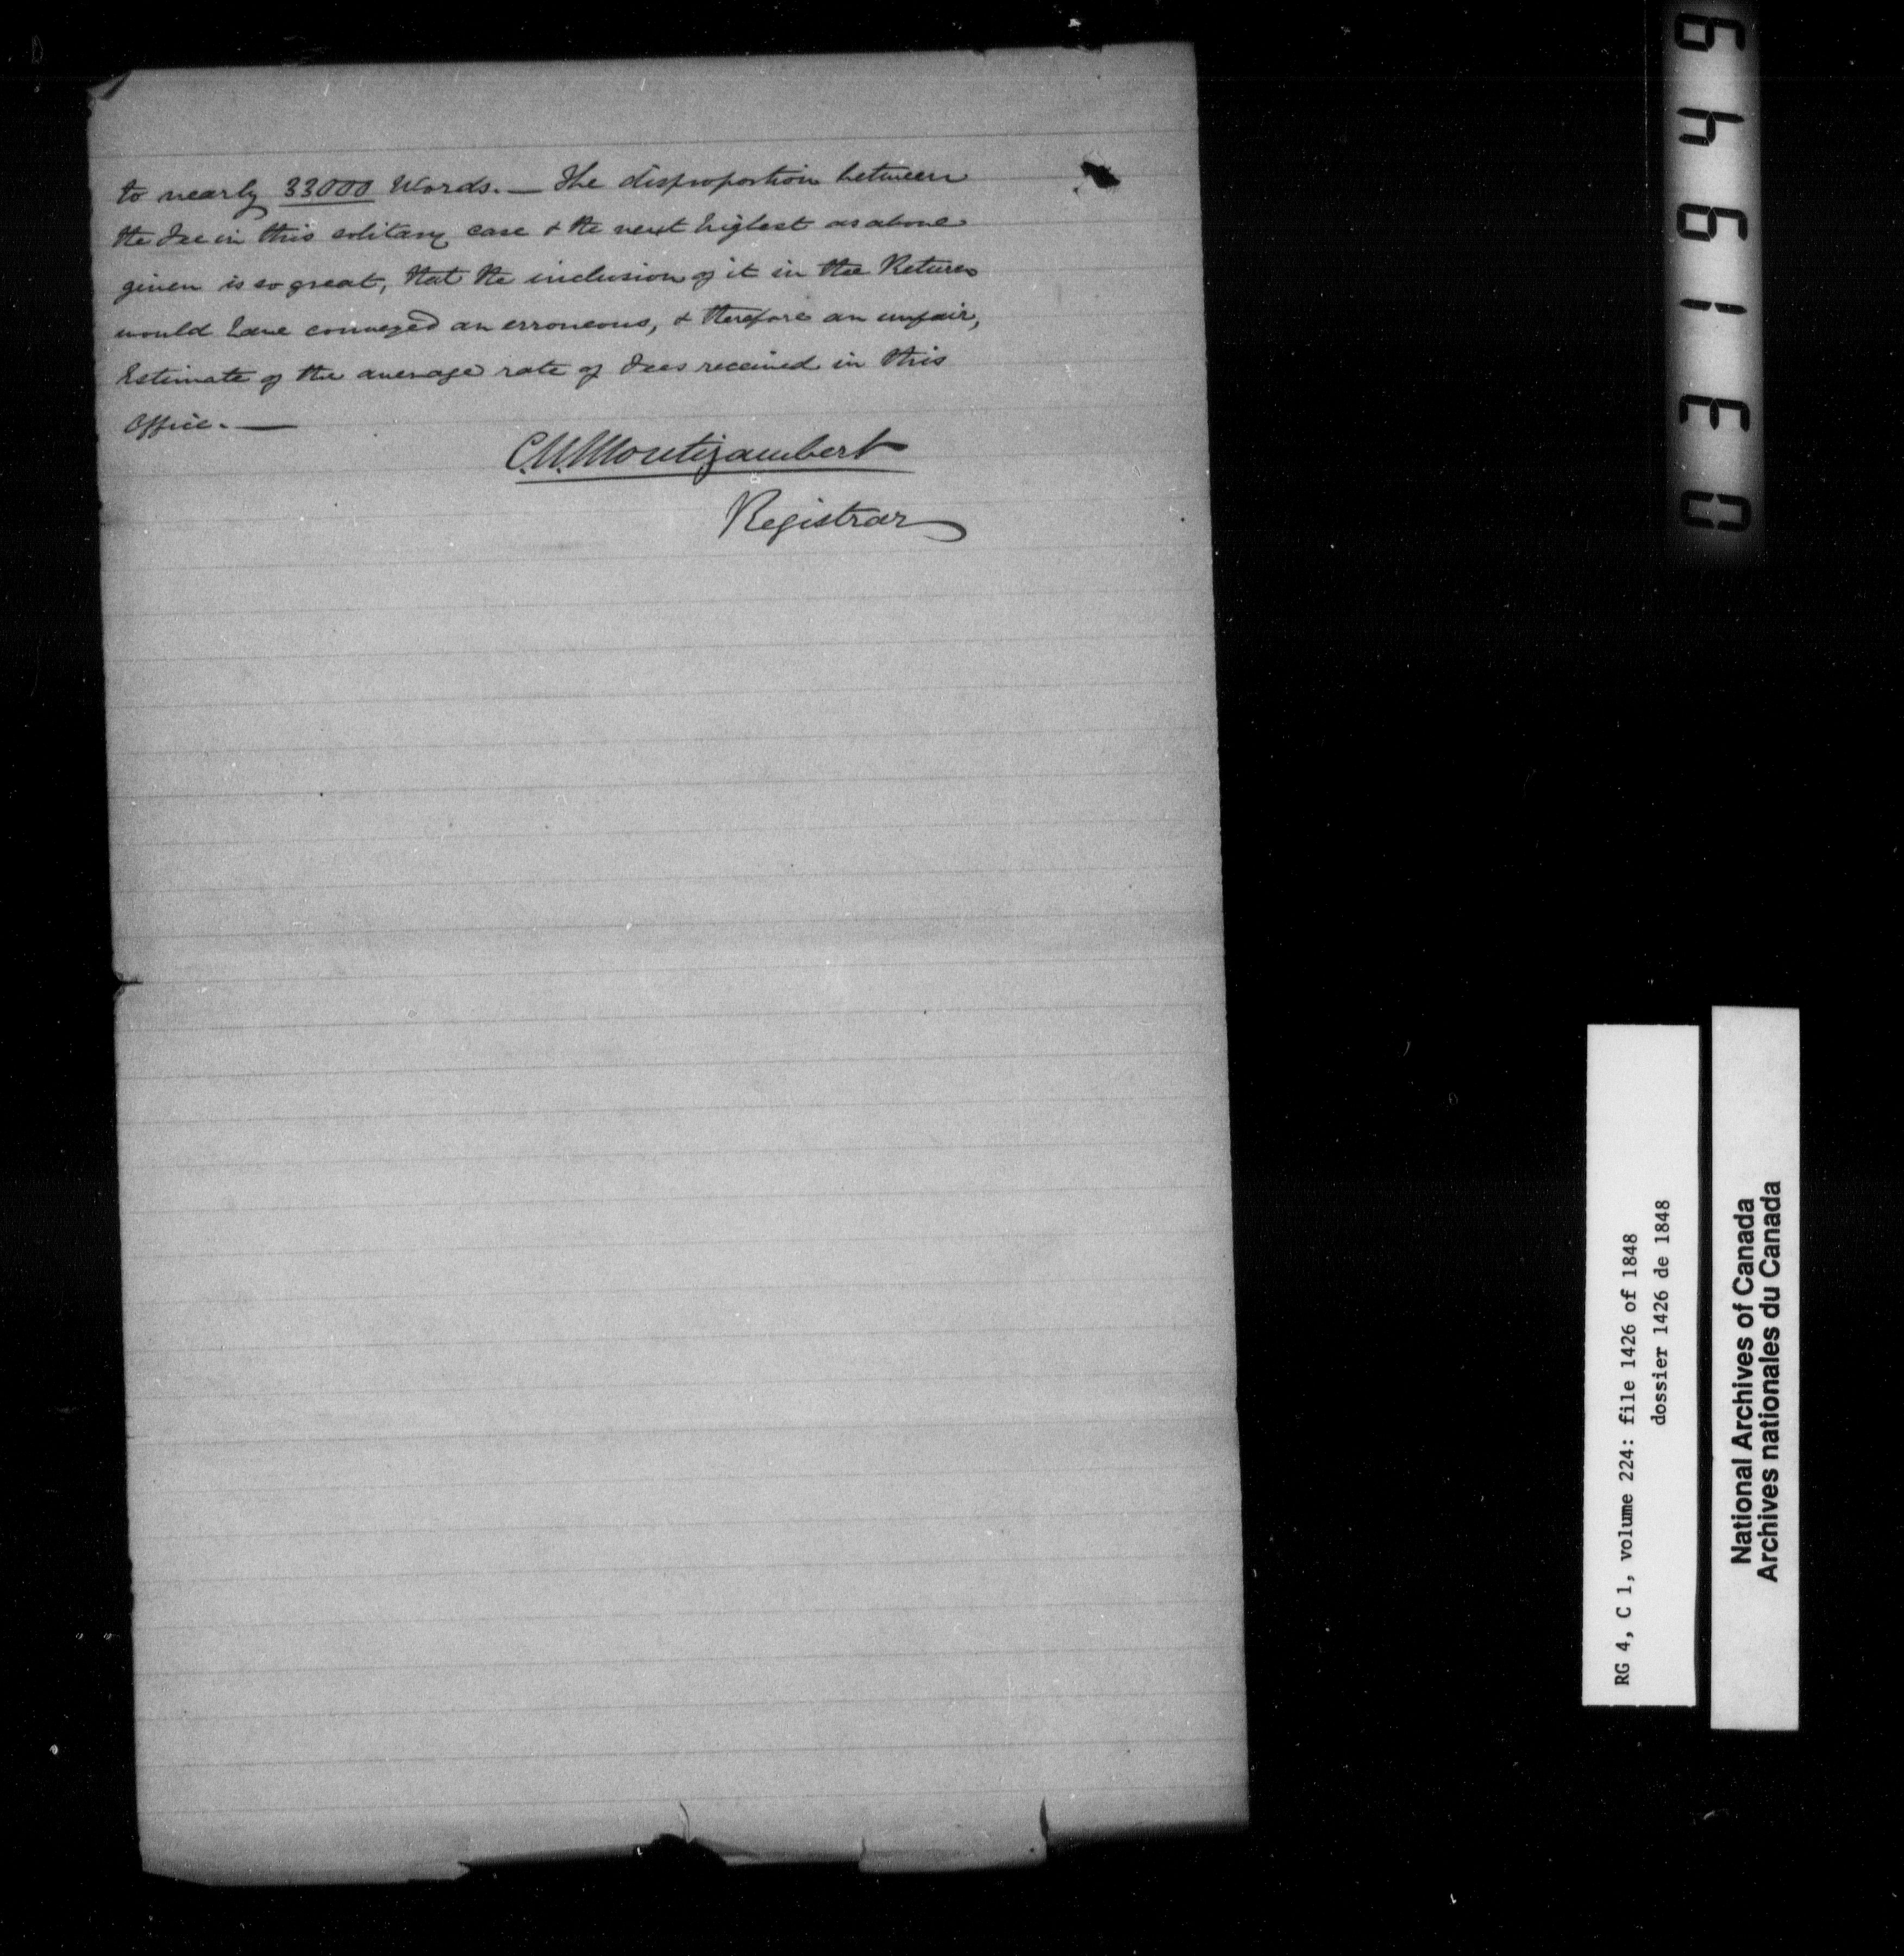 to nearly 33000 Words. — The disproportion between
the Fee in this solitary case & the next highest as above
given is so great, that the inclusion of it in the Return
would have conveyed an erroneous, & therefore an unfair,
Estimate of the average rate of Fees received in this
Office. —
C.N. Montizambert
Registrar
031649
RG 4, C 1, volume 224: file 1426 of 1848
dossier 1426 de 1848
National Archives of Canada
Archives nationales du Canada